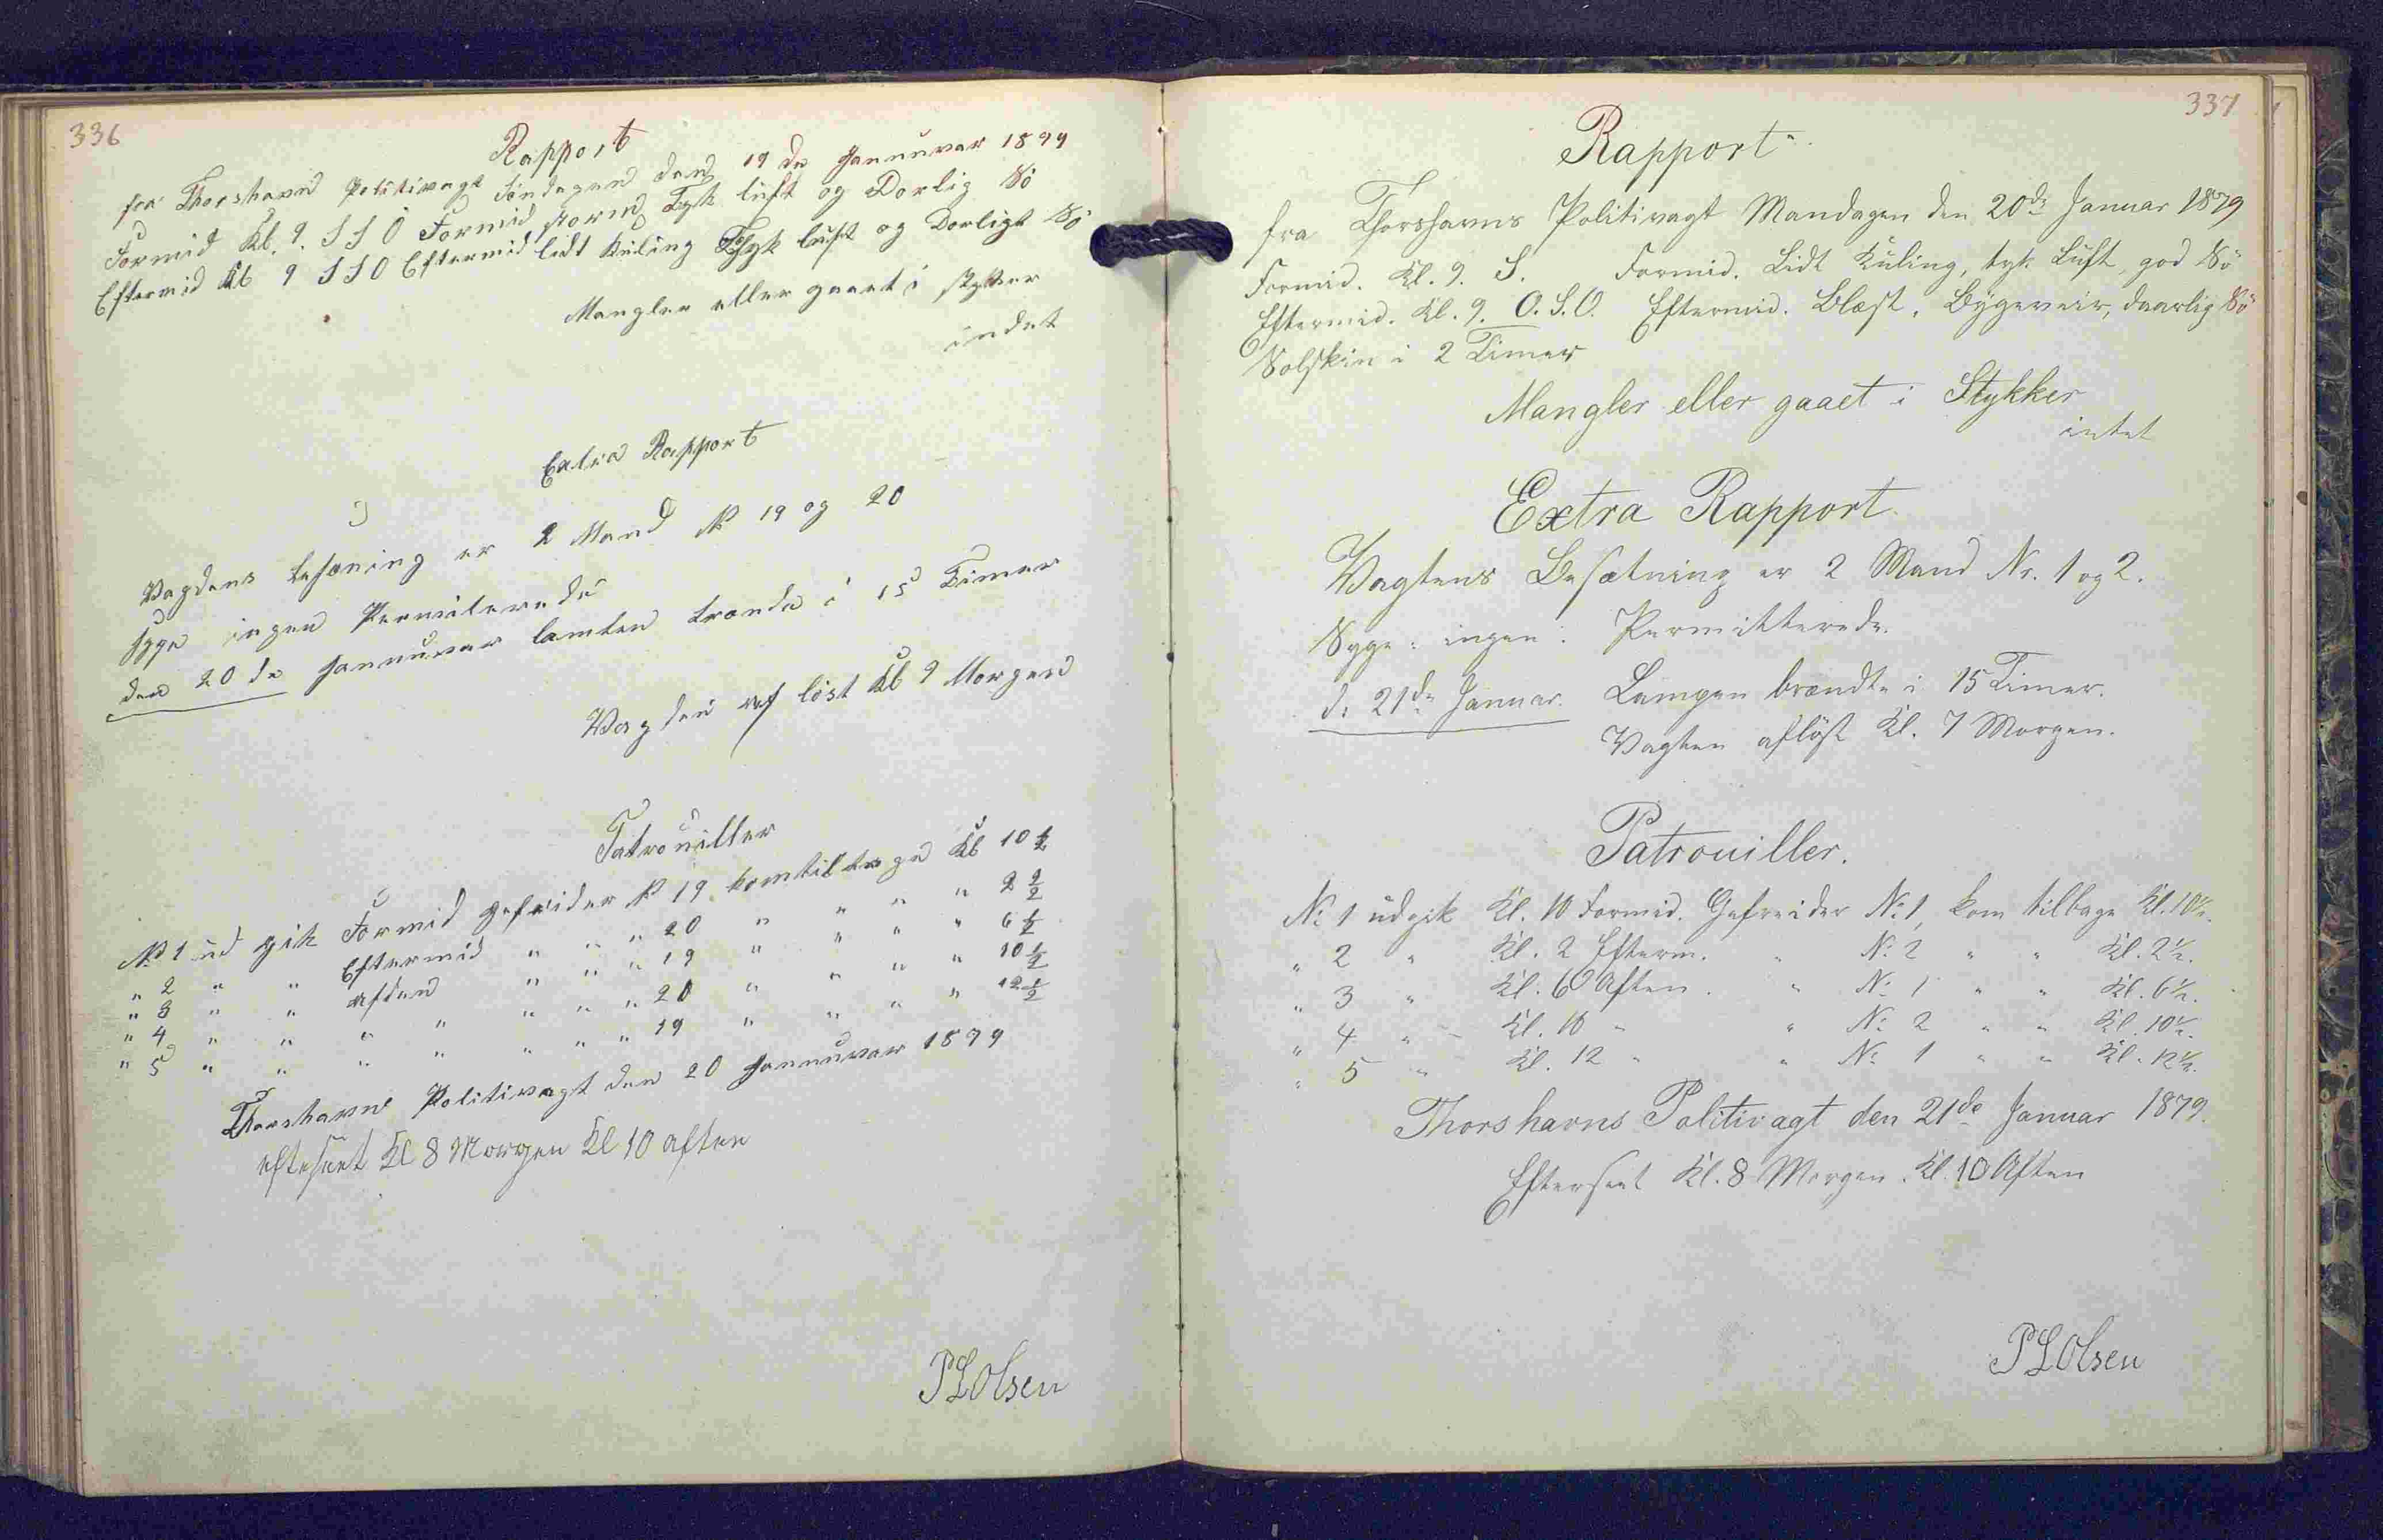 336
Rapport
fra Thorshavnd Politivagt Söndagend dend 19 de Januuvar 1879
Formid Kl. 9. S S O Formid storm Tyk luft og Dorlig Sö
Eftermid Kl 9 S S O Eftermid lidt Kuling Thyk luft og Dorligt Sö
Mangler eller gaaet i stykker
indet
Extra Rapport
Vagdens besæning er 2 Mand No 19 og 20
syge ingen Permiterede
den 20 de Januuvar lamten brænde i 15 Timer
Vagden af löst Kl 9 Morgend
Patrouiller
No 1 ud gik Formid gefreider No 19 kom tilbage Kl 10 ½
" 2 " " Eftermid " " " 20 " " " " 2 ½
" 3 " " aftend " " " 19 " " " " 6 ½
" 4 " " " " " " " 20 " " " " 10 ½
" 5 " " " " " " " 19 " " " " 12 ½
Thorshavns Politivagt den 20 Januuvar 1879
efteseet Kl 8 Morgen Kl 10 aften
PLOlsen
337
Rapport
fra Thorshavns Politivagt Mandagen den 20de Januar 1879
Formid. Kl. 9. S. Formid. Lidt Kuling, tyk Luft, god Sö
Eftermid. Kl. 9. O.S.O. Eftermid. Blæst, Bygeveir, daarlig Sö
Solskin i 2 Timer
Mangler eller gaaet i Stykker
intet
Extra Rapport.
Vagtens Besætning er 2 Mand Nr. 1 og 2.
Syge: ingen: Permitterede.
d: 21de Januar. Lampen brændte i 15 Timer.
Vagten aflöst Kl. 7 Morgen.
Patrouiller.
No 1 udgik Kl. 10 Formid. Gefreider No 1, kom tilbage Kl. 10½.
" 2 " Kl. 2 Efterm. " No 2 " " Kl. 2½.
" 3 " Kl. 6 Aften. " No 1 " " Kl. 6½.
" 4 " Kl. 10 " " No 2 " " Kl. 10½.
" 5 " Kl. 12 " " No 1 " " Kl. 12½.
Thorshavns Politivagt den 21de Januar 1879.
Efterseet Kl. 8 Morgen. Kl. 10 Aften
PLOlsen